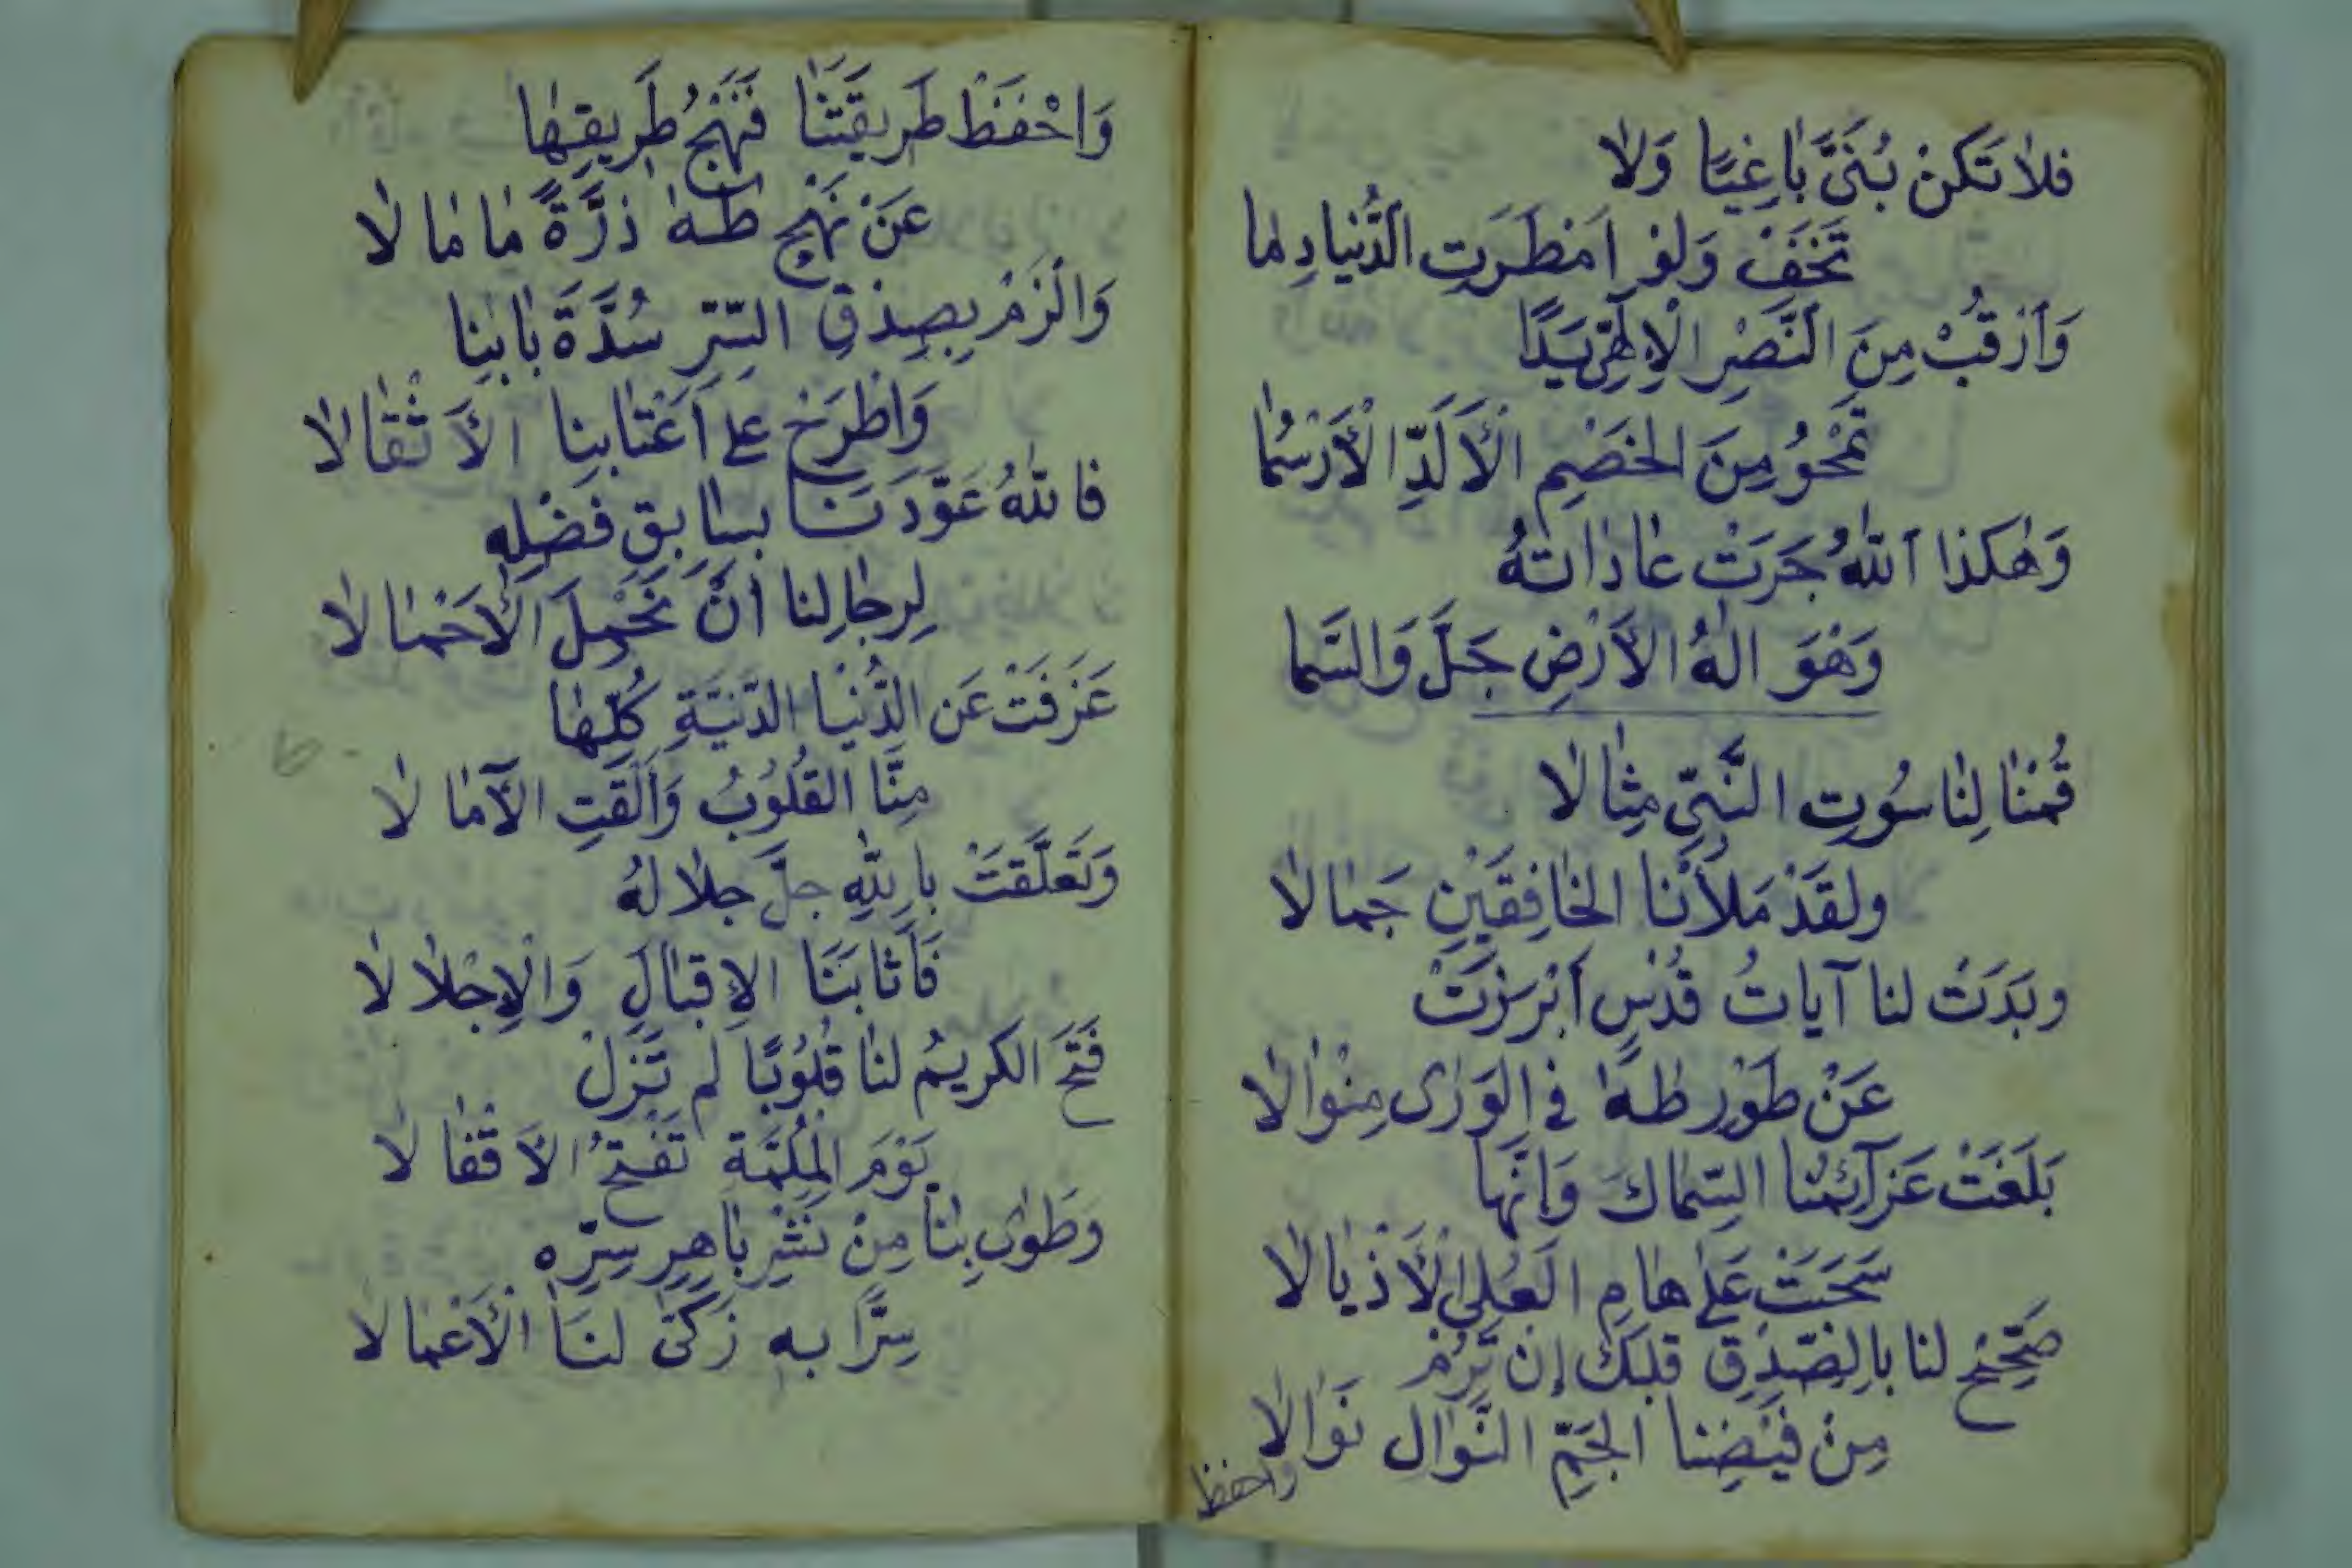 فلا تَكنْ بُنَىَّ بَاغِيًا وَلا
تَخَفْ وَلوْ امْطَرَتِ الدُّنيا دِمَا
وَارْقُبْ مِنَ النَّصْرِ الْاِلٰهِيّ يَدًا
تَمْحوُ مِنَ الخَصْمِ الْاَلَدِّ الْاَرْسُمَا
وَهٰكذا اللّٰهُ جَرَتْ عَادَاتهُ
وَهْوَ الهُ الاَرْضِ جَلَّ وَالسَّما
قُمْنَا لِنَاسُوتِ النَّبِيِّ مِثَالا
ولقَدْ مَلَأْنا الخَافِقَيْنِ جَمَالا
وبَدَتْ لنا آياتُ قُدْسٍ اَبْرَزَتْ
عَنْ طَوْرِ طٰهٰ في الوَرَى مِنْوَالا
بَلَغَتْ عَزآئِمُنا السِّمَاكَ وَاِنَّهَا
سَحَبَتْ عَلىٰ هَامِ العُلىٰ الْاَذْيَالا
صَحِّحْ لنا بالِصّدْقِ قلبَكَ إن تَرُمْ
مِنْ فَيْضِنا الجَمِّ النَّوَالِ نَوَالا
واحفظ
وَاحْفَظْ طَرِيقَتَنَا فَنَهْجُ طَرِيقِهَا
عَنْ نَهْجِ طٰهٰ ذَرَّةً مَا مَالا
وَالْزَمْ بِصِدْقِ السِّرِّ سُدَّةَ بَابِنا
وَاطْرَحْ عَلى اَعْتَابِنا الاَثْقَالا
فاللّٰهُ عَوَّدَنَا بسابِقِ فَضْلِهِ
لِرِجَالِنا انْ نَحْمِلَ الْاَحْمَالا
عَزَفَتْ عَن الدُّنْيَا الدَّنِيَّةِ كُلِّهَا
مِنَّا القُلُوبُ وَاَلْقَتِ الآمَالا
وَتَعَلَّقَتْ باللّٰهِ جلَّ جلالهُ
فَاَثَابَنَا الاِقبَالَ وَالْاِجْلالا
فَتَحَ الكريمُ لنَا قُلُوبًا لم تَزَلْ
يَوْمَ المُلِمَّةِ تَفْتَحُ الاَقْفَالا
وَطَوٰى بِنَا مِنْ نَشْرِ بَاهِرِ سِرِّهِ
سِرًّا به زَكَّى لنَا الْاَعْمَالا